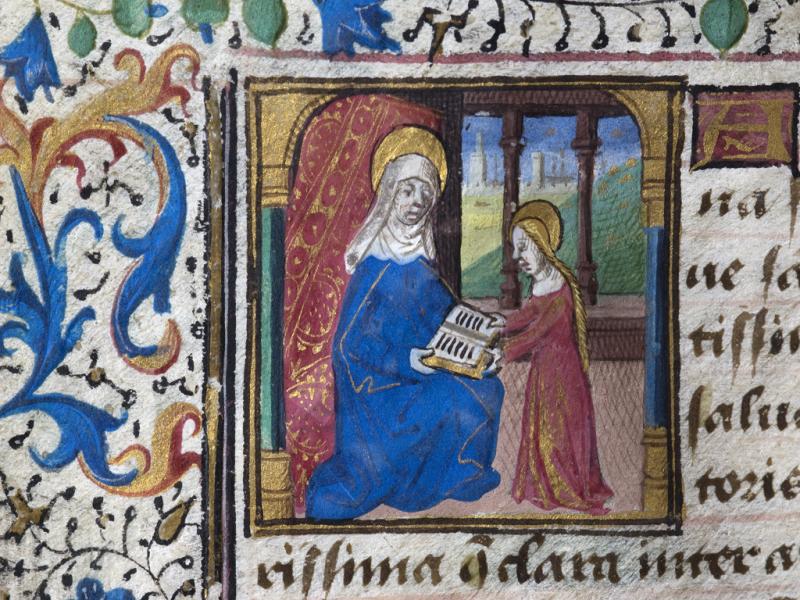 A
na
ue sa
tissi
salu
toris
rissima q̃ clara inter a